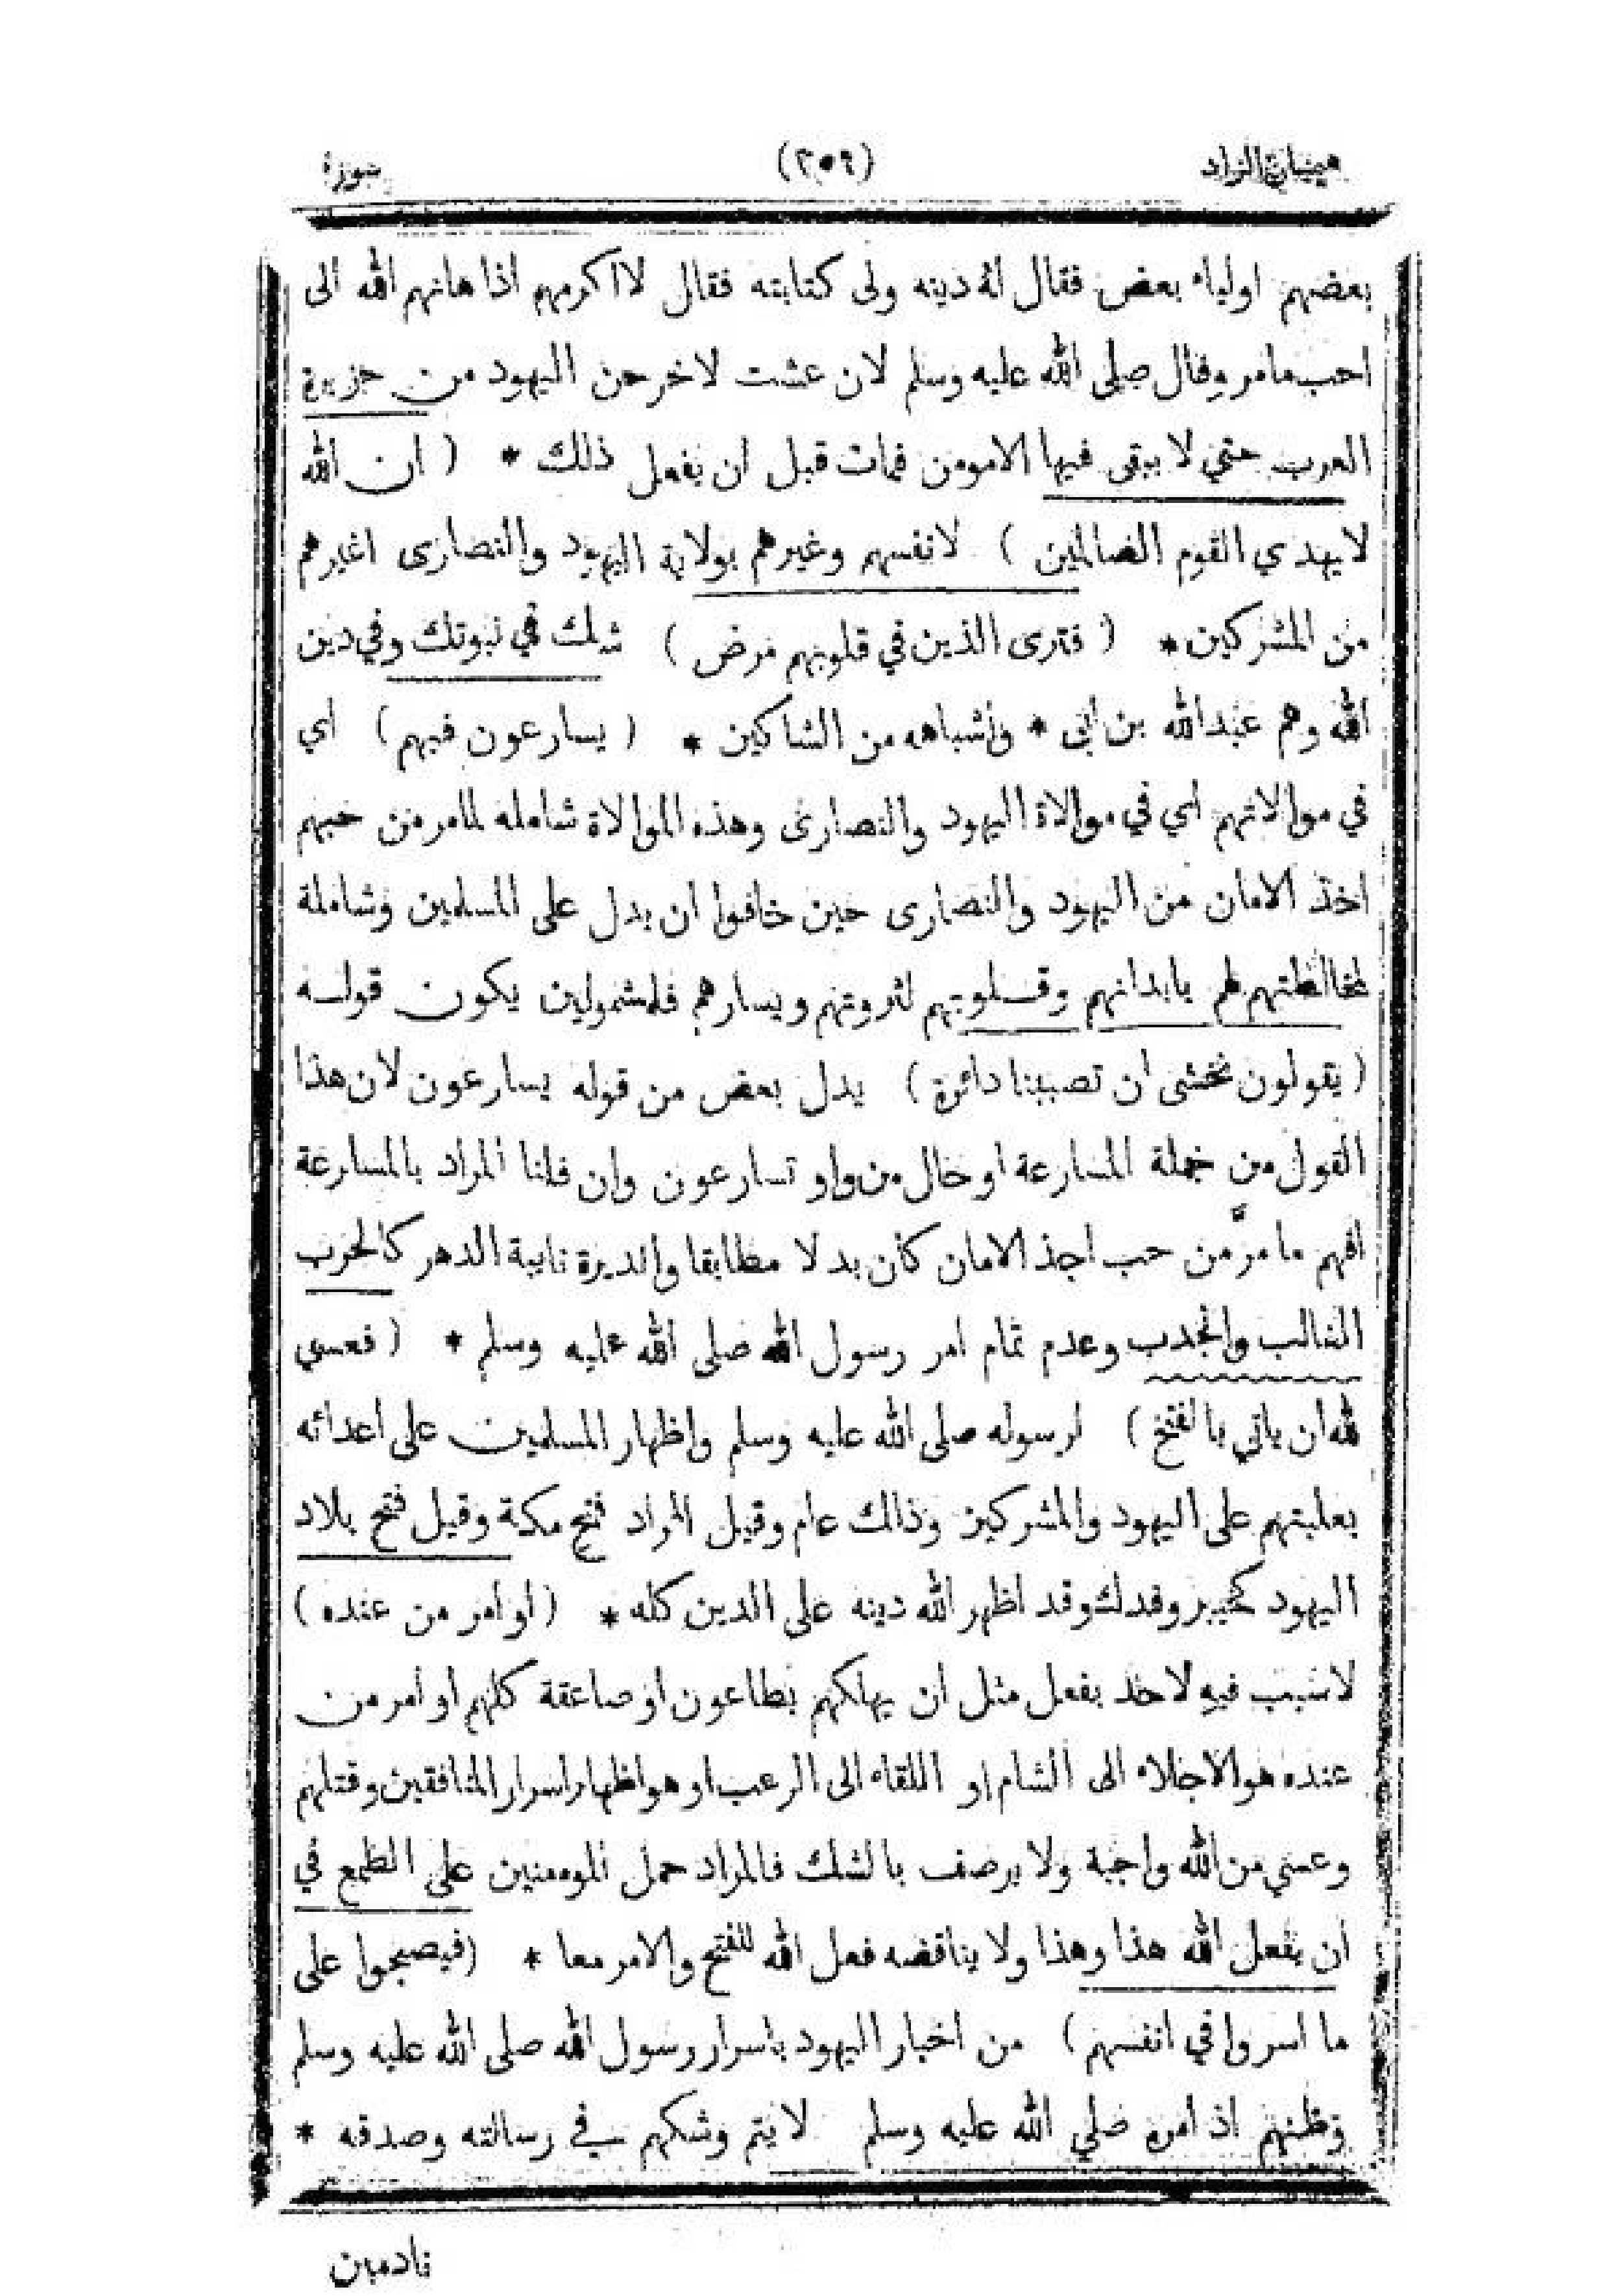 هيميان الزاد (٢٥٦) سورة
بعضهم اولياء بعض فقال له دينه ولى كتابته فقال لا اكرمهم اذا هانهم الله الى
احب مامر وقال صلى الله عليه وسلم لان عشت لاخرجن اليهود من جزيرة
العرب حتى لا يبقى فيها الامومن فمات قبل ان يفعل ذلك * ( ان الله
لا يهدي القوم الظالمين ) لانفسهم وغيرهم بولاية اليهود والنصارى اغيرهم
من المشركين * ( فترى الذين في قلوبهم مرض ) شك في نبوتك وفي دين
الله وهم عبدالله بن ابى * وأشباهه من الشاكين * ( يسارعون فيهم ) اي
في موالاتهم اي في موالاة اليهود والنصارى وهذه الموالاة شامله لمامر من حبهم
اخذ الامان من اليهود والنصارى حين خافوا ان يدل على المسلمين وشاملة
لمخالطتهم لهم بابدانهم وقلوبهم لثروتهم ويسارهم فلمشمولين يكون قوله
( يقولون نخشى ان تصيبنا دائرة ) يدل بعض من قوله يسارعون لان هذا
القول من جملة المسارعة او حال من واو تسارعون وان قلنا المراد بالمسارعة
افهم ما مرَّ من حب اجذ الامان كأن بدلا مطابقا والديرة نايبة الدهر كالحرب
الغالب والجدب وعدم تمام امر رسول الله صلى الله عليه وسلم * ( فعسى
لله أن ياتي بالفتح ) لرسوله صلى الله عليه وسلم واظهار المسلمين على اعدائه
بغلبتهم على اليهود والمشركين وذالك عام وقيل المراد فتح مكة وقيل فتح بلاد
اليهود كخيبر وفدك وقد اظهر الله دينه على الدين كله * ( او امر من عنده )
لا سبب فيه لاحد بفعل مثل ان يهلكهم بطاعون او صاعقة كلهم او امر من
عنده هو الاجلاء الى الشام او اللقاء الى الرعب او هو اظهار اسرار المنافقين وقتلهم
وعسي من الله واجبة ولا يرصف بالشك فالمراد حمل المومنين على الطمع في
أن يفعل الله هذا وهذا ولا يناقضه فعل الله للفتح والامر معا * (فيصبحوا على
ما اسروا في انفسهم ) من اخبار اليهود باسرار رسول الله صلى الله عليه وسلم
وظنهم ان امره صلي الله عليه وسلم لا يتم وشكهم في رسالته وصدقه *
نادمين